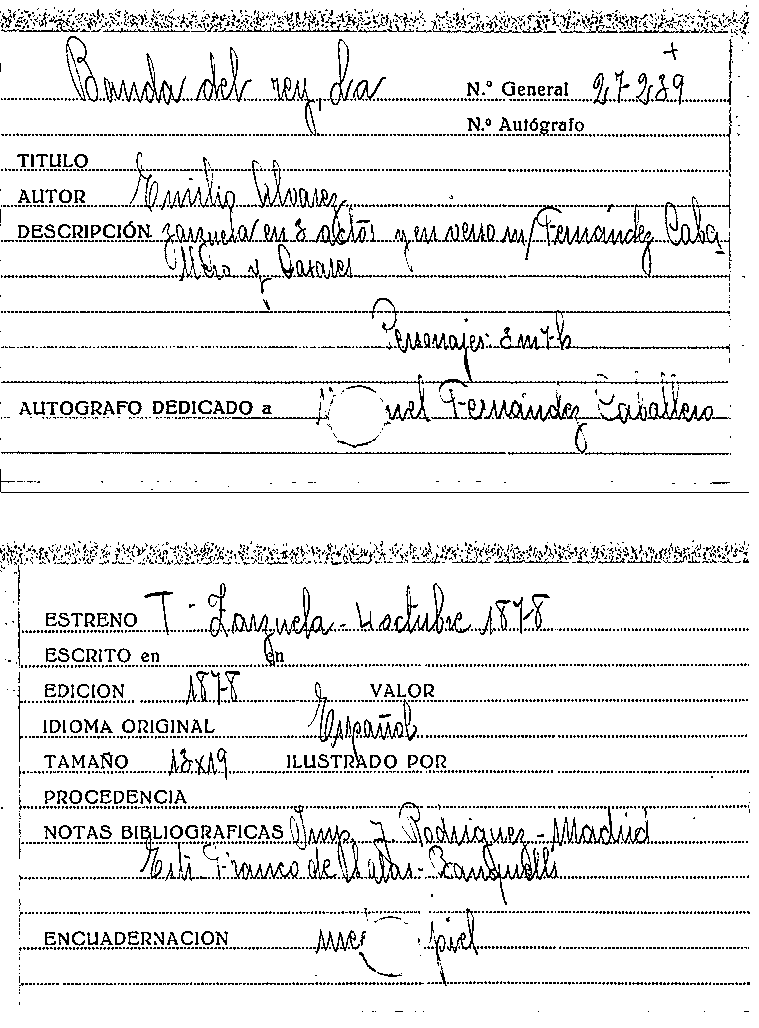 Banda del rey, La
N.º General 27-239
N.º Autógrafo
TITULO
AUTOR Emilio Alvarez
DESCRIPCIÓN zarzuela en 3 actos y en verso m/ Fernández Caba-
llero y Casares
Personajes: 3 m 7 h
AUTOGRAFO DEDICADO a Fernández Caballero
ESTRENO T - Zarzuela - 4 octubre 1878
ESCRITO en en
EDICION 1878 VALOR
IDIOMA ORIGINAL Español
TAMAÑO 13x19 ILUSTRADO POR
PROCEDENCIA
NOTAS BIBLIOGRAFICAS Imp. J Rodriguez - Madrid
Franco de
ENCUADERNACION piel